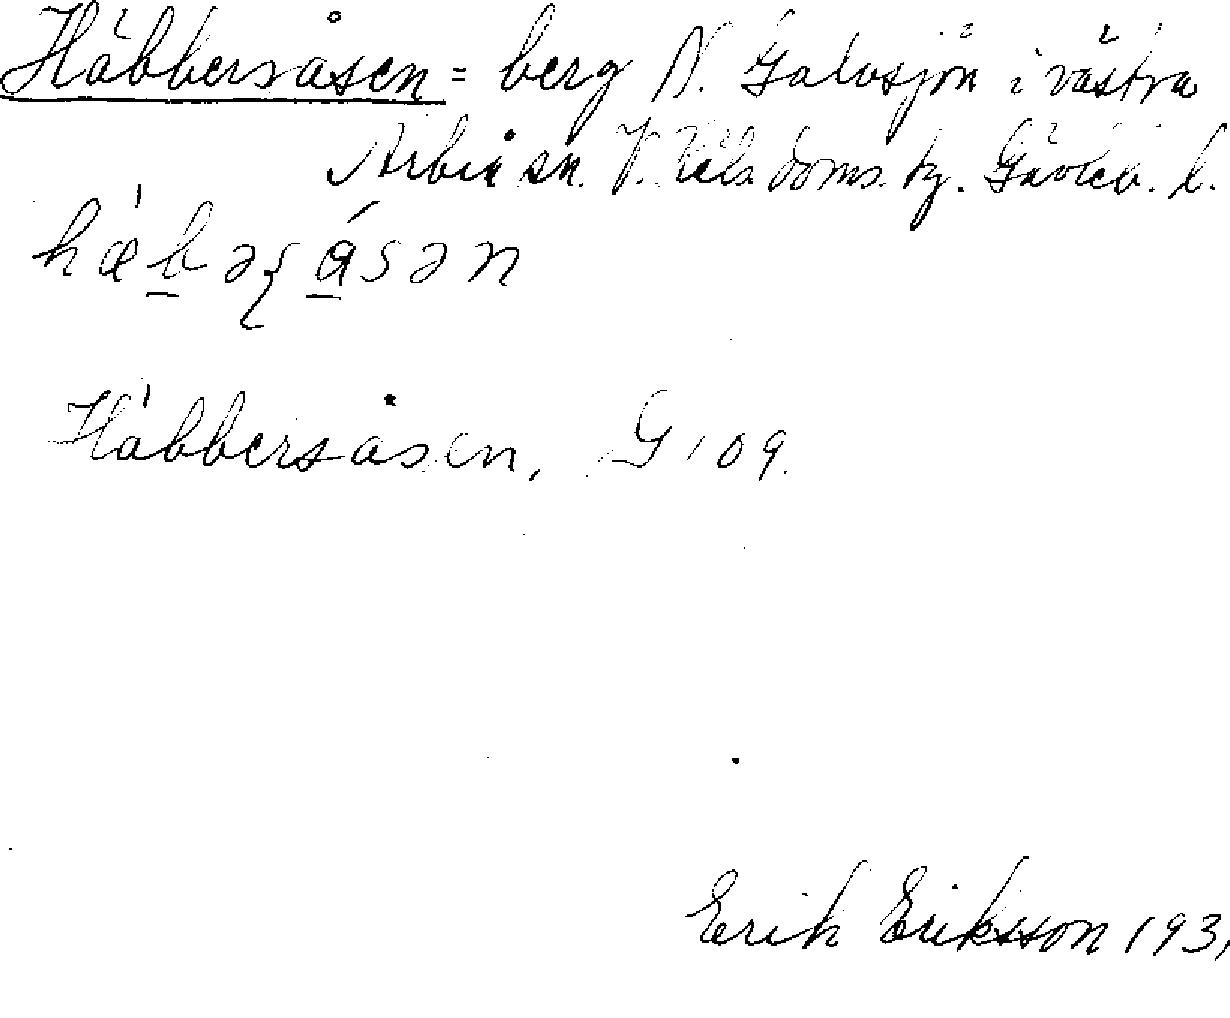 Häbbersåsen = berg N. Galvsjön i västra
Arbrå sn. V. Häls. doms. hg. Gävleb. l.
hæbəʂåsən
Häbbersåsen, G 109.
Erik Eriksson 193